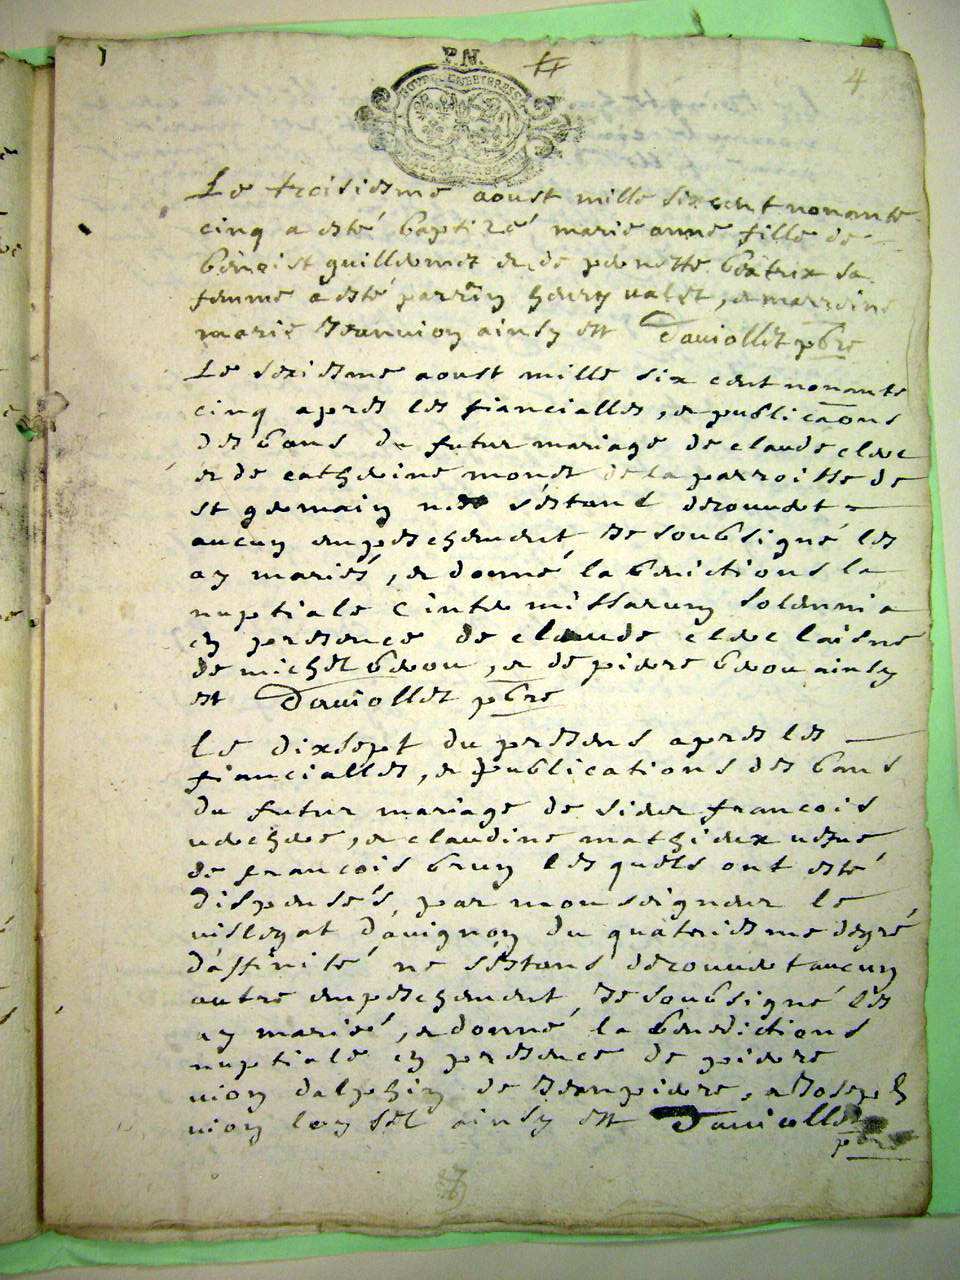 P.N.
4
BOURG EN BRESSE
Le troisiesme aoust mille six cent nonante
cinq a esté baptizé marie anne fille de
benoist guillermet & de pernette beatrix sa
femme a esté parrin henry valet, & marreine
marie Jeanvion ainsy est Daviollet pbre
Le sexiesme aoust mille six cent nonante
cinq apres les fiancialles, & publicaons
des bans du futur mariage de claude clerc
& de catherine monet de la parroisse de
st germain ne s'estant decouvert
aucun empeschement Je soubsigné les
ay mariés, & donné la benictions la
nuptiale inter missarum solemnia
en presence de claude clerc laisné
de michel breou, & de pierre breou ainsy
est Daviollet pbre
Le dixsept du presens apres les
fiancialles, & publications des bans
du futur mariage de sieur francois
verchere, & claudine mathieux vefve
de francois brun lesquels ont esté
dispensés, par monseigneur le
vislegat davignon du quatriesme degré
d'affinité ne s'estans decouvert aucun
autre empeschement, Je soubsigné les
ay marié, & donné la benedictions
nuptiale en presence de pierre
vion dalphin de Jeanpierre, & Joseph
vion ainsy est Daviollet
pbre